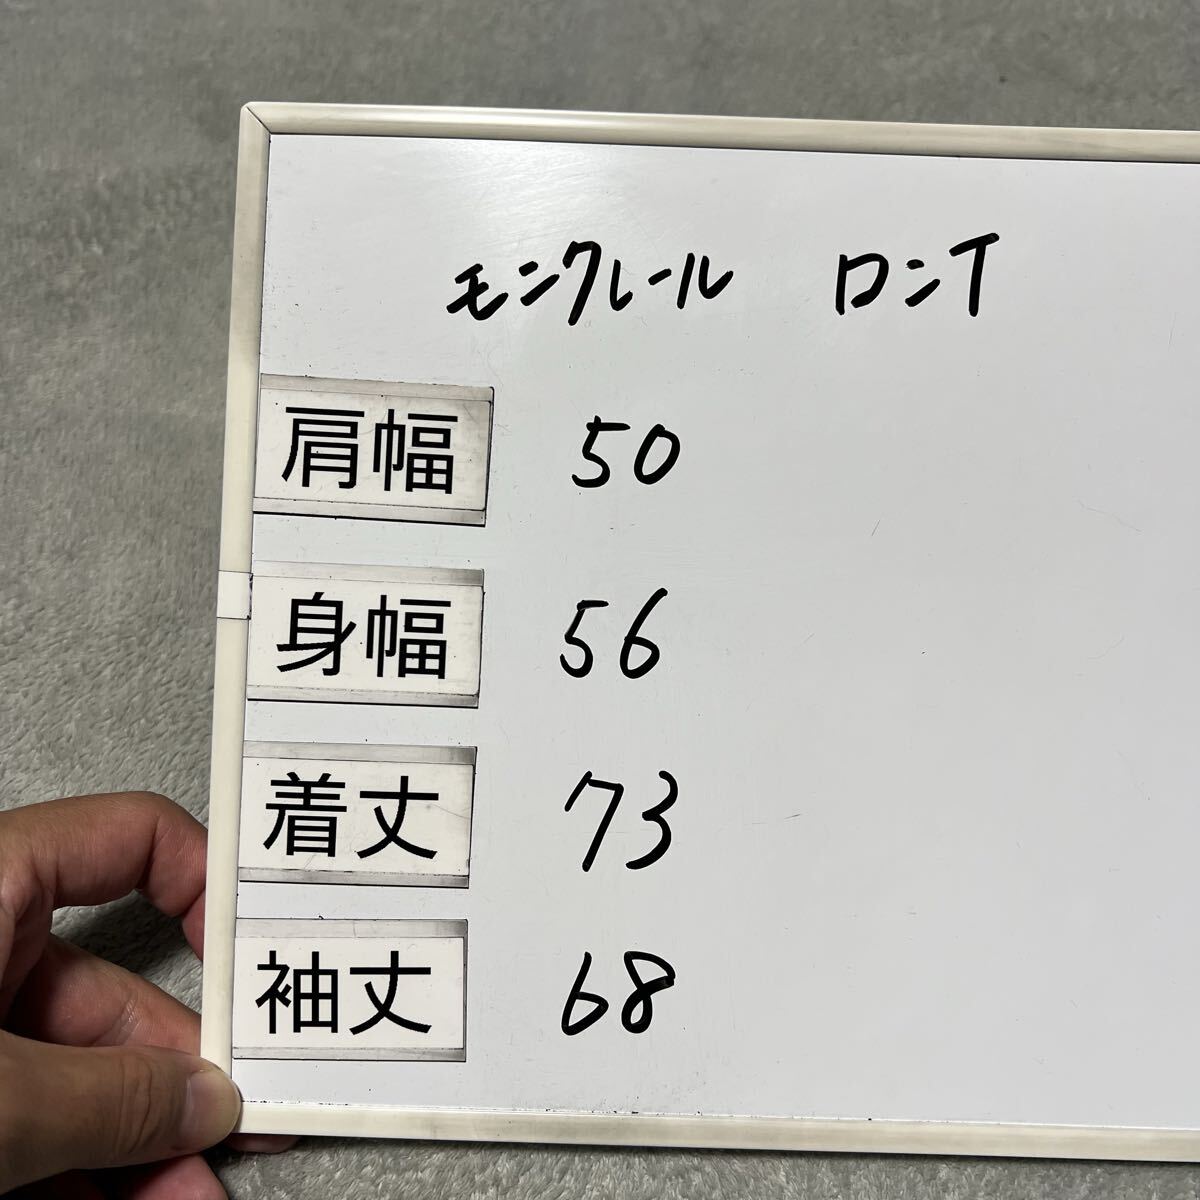 モンクレール ロンT
肩幅 50
身幅 56
着丈 73
袖丈 68